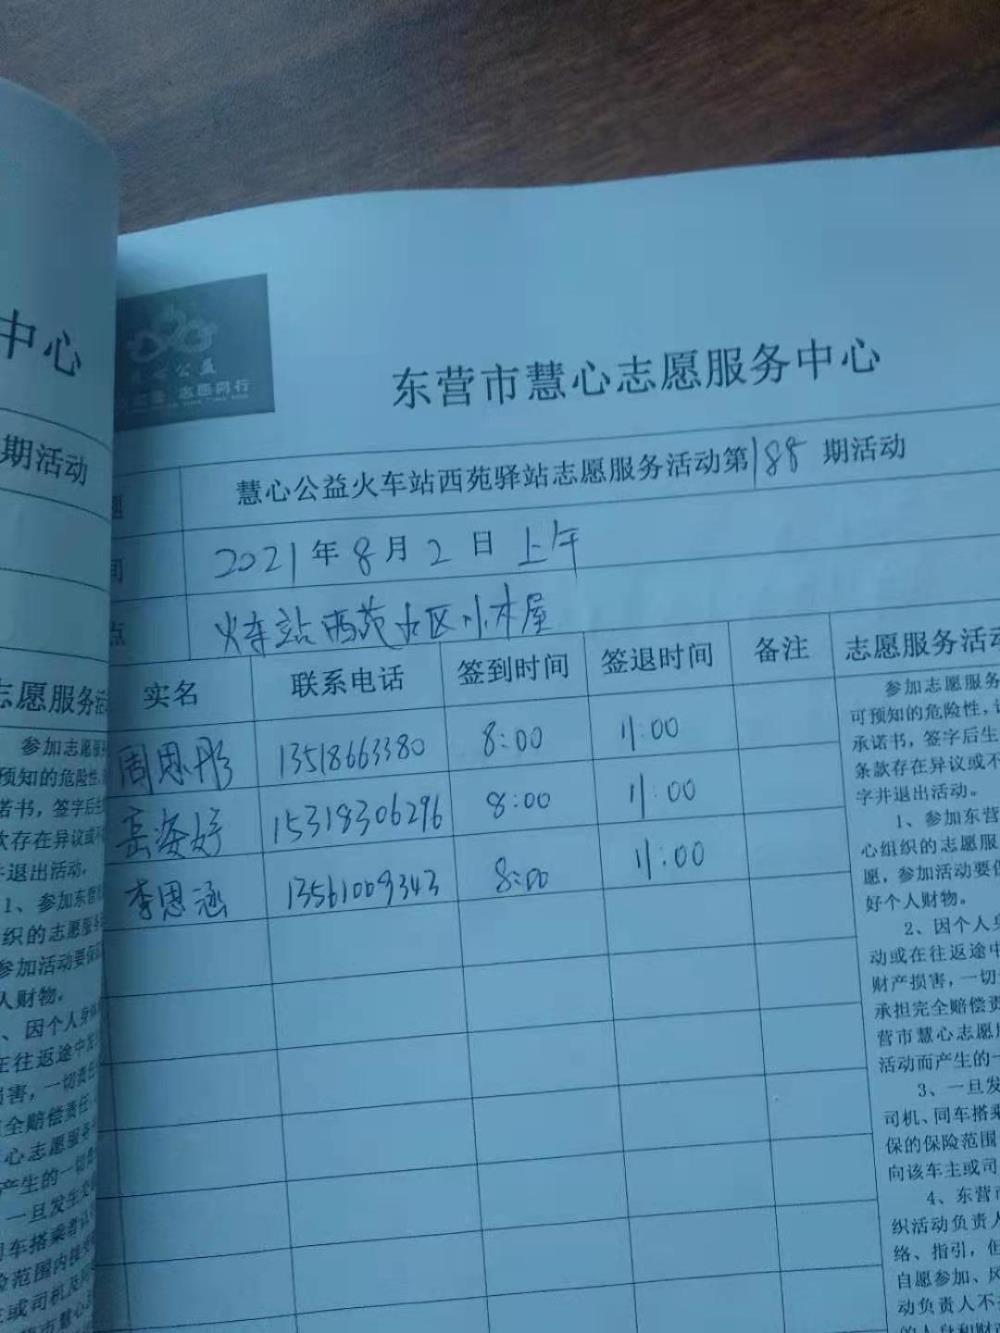 中心
期活动
志愿服务活
参加志愿服
预知的危险性,
诺书,签字后生
款存在异议或不
并退出活动。
1、参加东营
组织的志愿服务
参加活动要保
人财物。
、因个人身体
在往返途中发
损害,一切责任
全赔偿责任,
心志愿服务
产生的一切
一旦发生交
司车搭乘者
险范围内
主或司机及
营市慧心
公益
志愿同行
东营市慧心志愿服务中心
题 慧心公益火车站西苑驿站志愿服务活动第188期活动
间 2021年8月2日上午
点 火车站西苑社区小木屋
实名 联系电话 签到时间 签退时间 备注 志愿服务活动
周恩彤 13518663380 8:00 11:00
岳姿好 15318306296 8:00 11:00
李恩涵 13561009343 8:00 11:00
参加志愿服务
可预知的危险性,
承诺书,签字后生
条款存在异议或不
字并退出活动。
1、参加东营
心组织的志愿服
愿,参加活动要保
好个人财物。
2、因个人身
动或在往返途中
财产损害,一切
承担完全赔偿责
营市慧心志愿服
活动而产生的一
3、一旦发
司机、同车搭乘
保的保险范围
向该车主或司
4、东营市
织活动负责人
络、指引,但
自愿参加、风
动负责人不
的人身和财